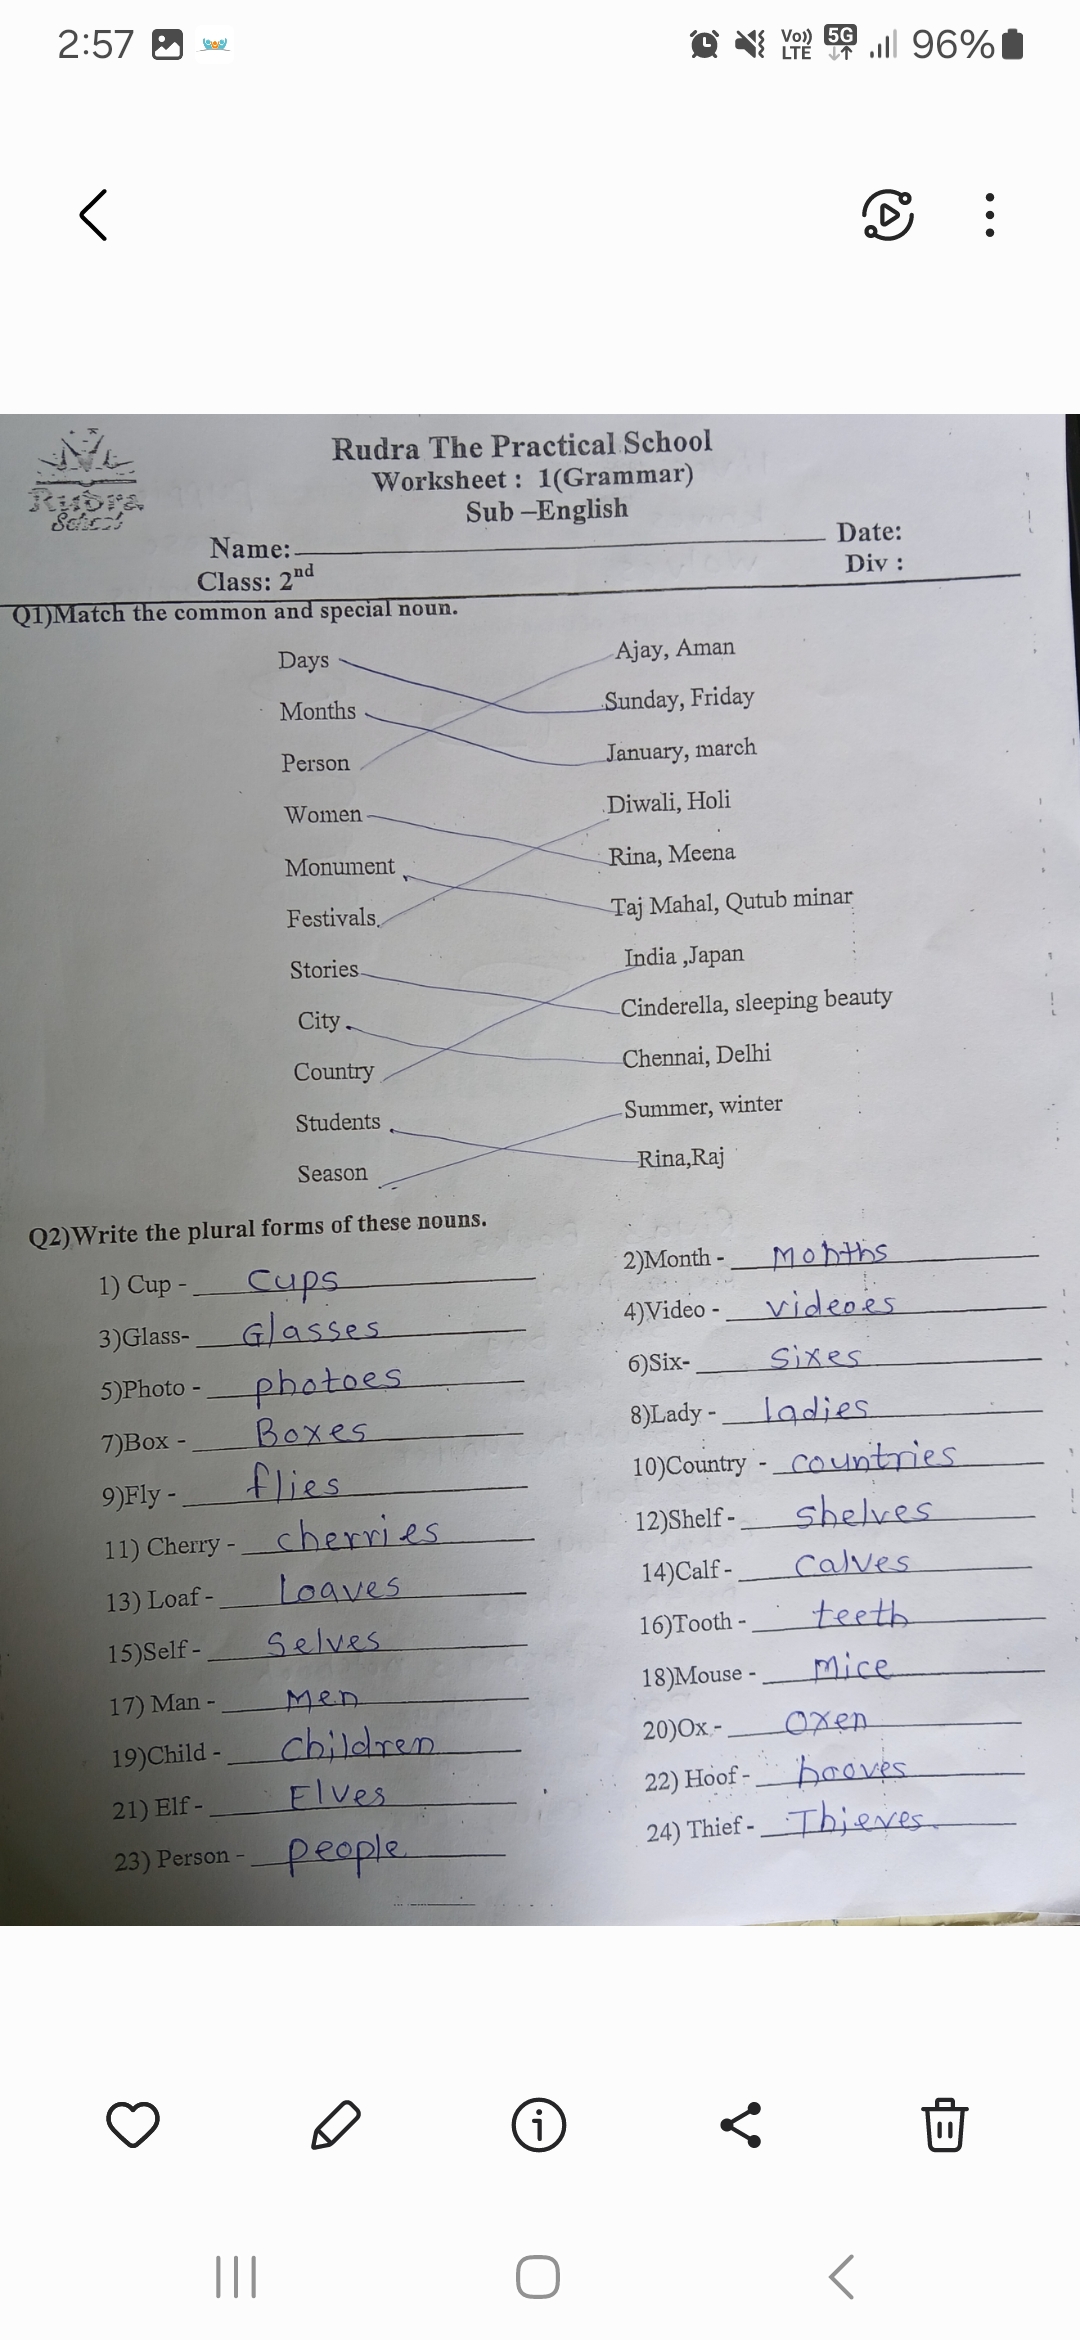 2:57 Vo)) LTE 5G 96%
Rudra School
Rudra The Practical School
Worksheet : 1(Grammar)
Sub –English
Name: Date:
Class: 2nd Div :
Q1)Match the common and special noun.
Days Ajay, Aman
Months Sunday, Friday
Person January, march
Women Diwali, Holi
Monument Rina, Meena
Festivals Taj Mahal, Qutub minar
Stories India ,Japan
City Cinderella, sleeping beauty
Country Chennai, Delhi
Students Summer, winter
Season Rina,Raj
Q2)Write the plural forms of these nouns.
1) Cup - cups 2)Month - Months
3)Glass- Glasses 4)Video - videoes
5)Photo - photoes 6)Six- Sixes
7)Box - Boxes 8)Lady - ladies
9)Fly - flies 10)Country - countries
11) Cherry - cherries 12)Shelf - shelves
13) Loaf - Loaves 14)Calf - calves
15)Self - Selves 16)Tooth - teeth
17) Man - Men 18)Mouse - Mice
19)Child - children 20)Ox - oxen
21) Elf - Elves 22) Hoof - hooves
23) Person - people 24) Thief - Thieves.